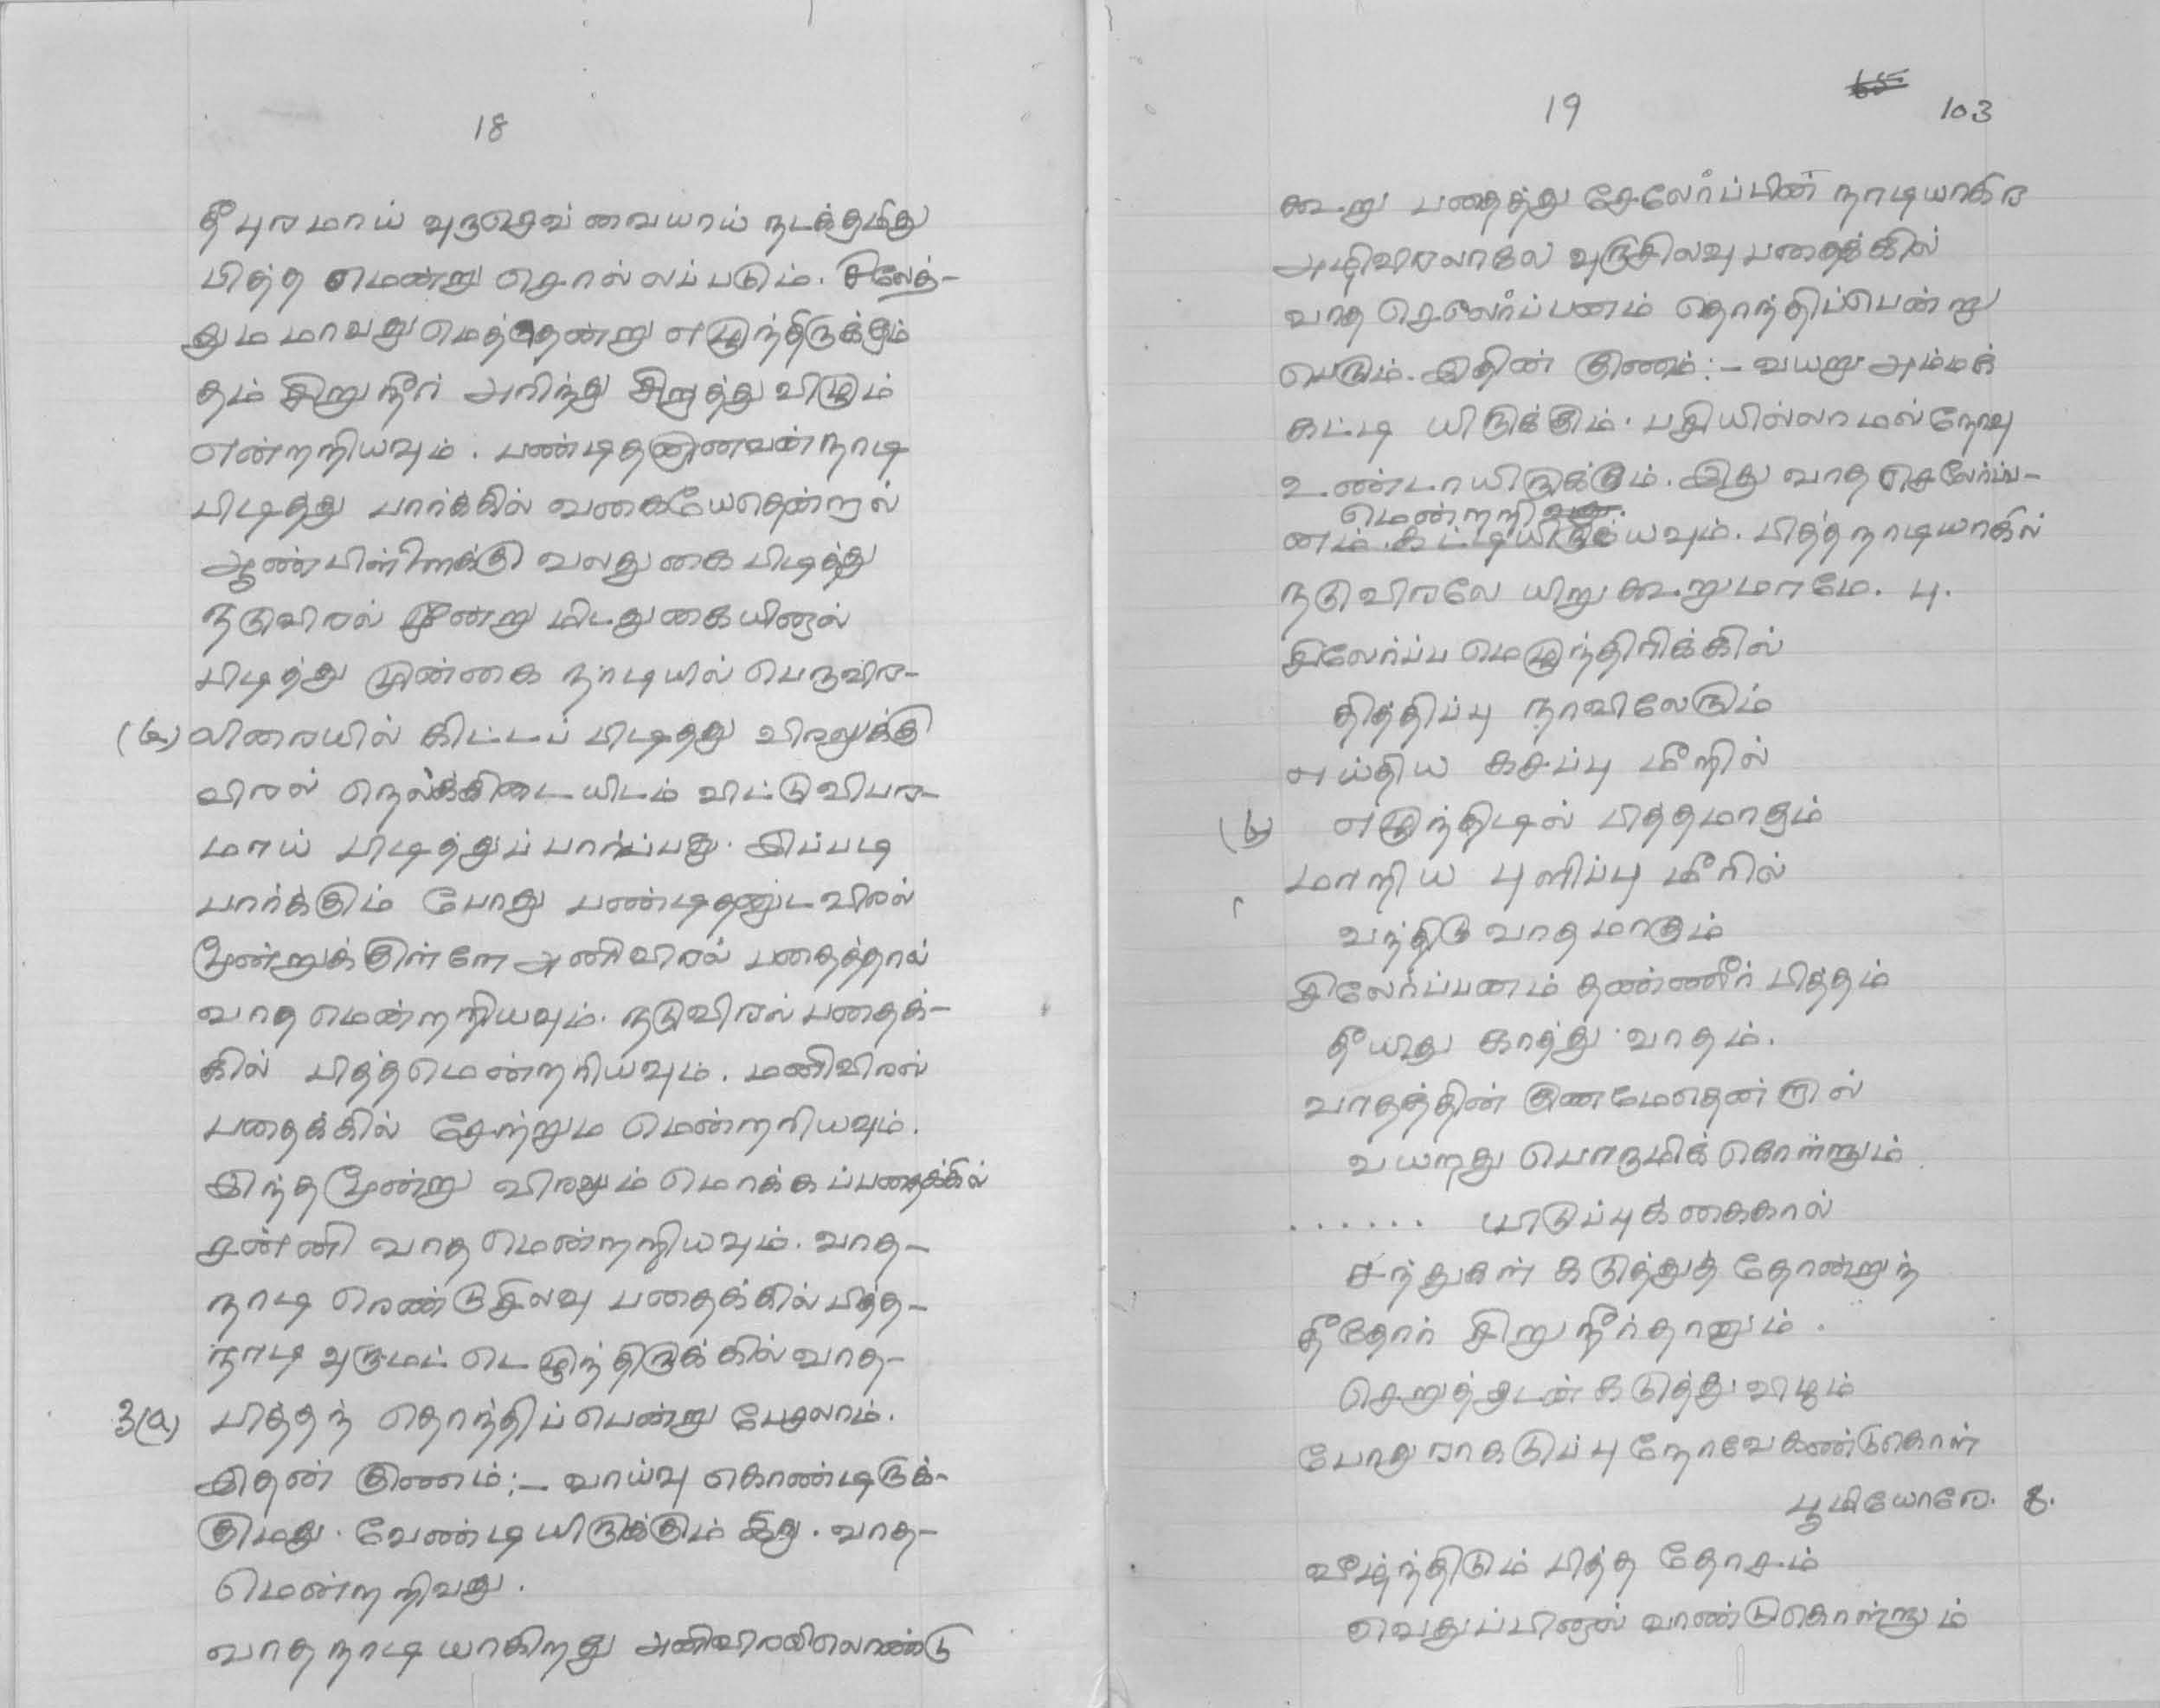 18
தீபுரமாய் வுருசெவ்வையாய் நடக்குமிது
பித்த மென்று சொல்லப்படும். சிலேத்-
துமமாவது மெத்தென்று எழுந்திருக்கும்
தம் சிறுநீர் அரிந்து சிறுத்து விழும்
என்றறியவும். பண்டிதனானவன் நாடி
பிடித்து பார்க்கில் வகையேதென்றால்
ஆண்பிள்ளைக்கு வலதுகை பிடித்து
நடுவிரல் மூன்று மிடதுகையினால்
பிடித்து முன்கை நாடியில் பெருவிர-
(b) லிரையில் கிட்டப் பிடித்து விரலுக்கு
விரல் நெல்க்கிடையிடம் விட்டு விபர-
மாய் பிடித்துப் பார்ப்பது. இப்படி
பார்க்கும் போது பண்டிதனுட விரல்
மூன்றுக்குள்ளே அணிவிரல் பதைத்தால்
வாத மென்றறியவும். நடுவிரல் பதைக்-
கில் பித்தமென்றரியவும். மணிவிரல்
பதைக்கில் சேற்றும மென்றரியவும்.
இந்த மூன்று விரலும் மொக்கப்பதைக்கில்
சன்னி வாத மென்றறியவும். வாத-
நாடி ரெண்டுசிலவு பதைக்கில் பித்த-
நாடி வுருமட்டெழுந்திருக்கில் வாத-
3(a) பித்தந் தொந்திப்பென்று பேசலாம்.
இதன் குணம்:- வாய்வு கொண்டிருக்-
குமது. வேண்டியிருக்கும் இது. வாத-
மென்றறிவது.
வாதநாடி யாகிறது அணிவிரலிலொண்டு
19
103
கூறு பதைத்து சேலேர்ப்பின் நாடியாகிர
அழிவிரலாகல் வுருசிலவு பதைக்கில்
வாத செலேர்ப்பனம் தொந்திப்பென்று
பெடும். இதின் குணம்:- வயறு அம்மக்
கட்டி யிடுக்கும். பசியில்லாமல் நோவு
உண்டாயிருக்கும். இது வாத செலேர்ப்ப-
மென்றறி
னம். யவும். பித்தநாடியாகில்
நடுவிரலே யிறுகூறுமாமே. பு.
சிலேர்ப்ப மெழுந்திரிக்கில்
தித்திப்பு நாவிலேடும்
எய்திய கசப்பு மீறில்
(b) எழுந்திடில் பித்தமாதம்
மாறிய புளிப்பு மீரில்
வந்திடு வாதமாகும்
சிலேர்ப்பனம் தண்ணீர் பித்தம்
தீயது காத்து வாதம்.
வாதத்தின் குணமேதென்றில்
வயறது பொருமிக் கொள்ளும்
...... யிடுப்புக் கைகால்
சந்துகள் கடுத்துத் தோண்றுந்
தீதோர் சிறுநீர்தானும்.
செறுத்துடன் கடுத்து விழும்
போதுறாகடுப்பு நோவே கண்டுகொள்
பூமியோரே. 8.
வீழ்ந்திடும் பித்த தோசம்
வெதுப்பினால் வாண்டுகொள்ளும்